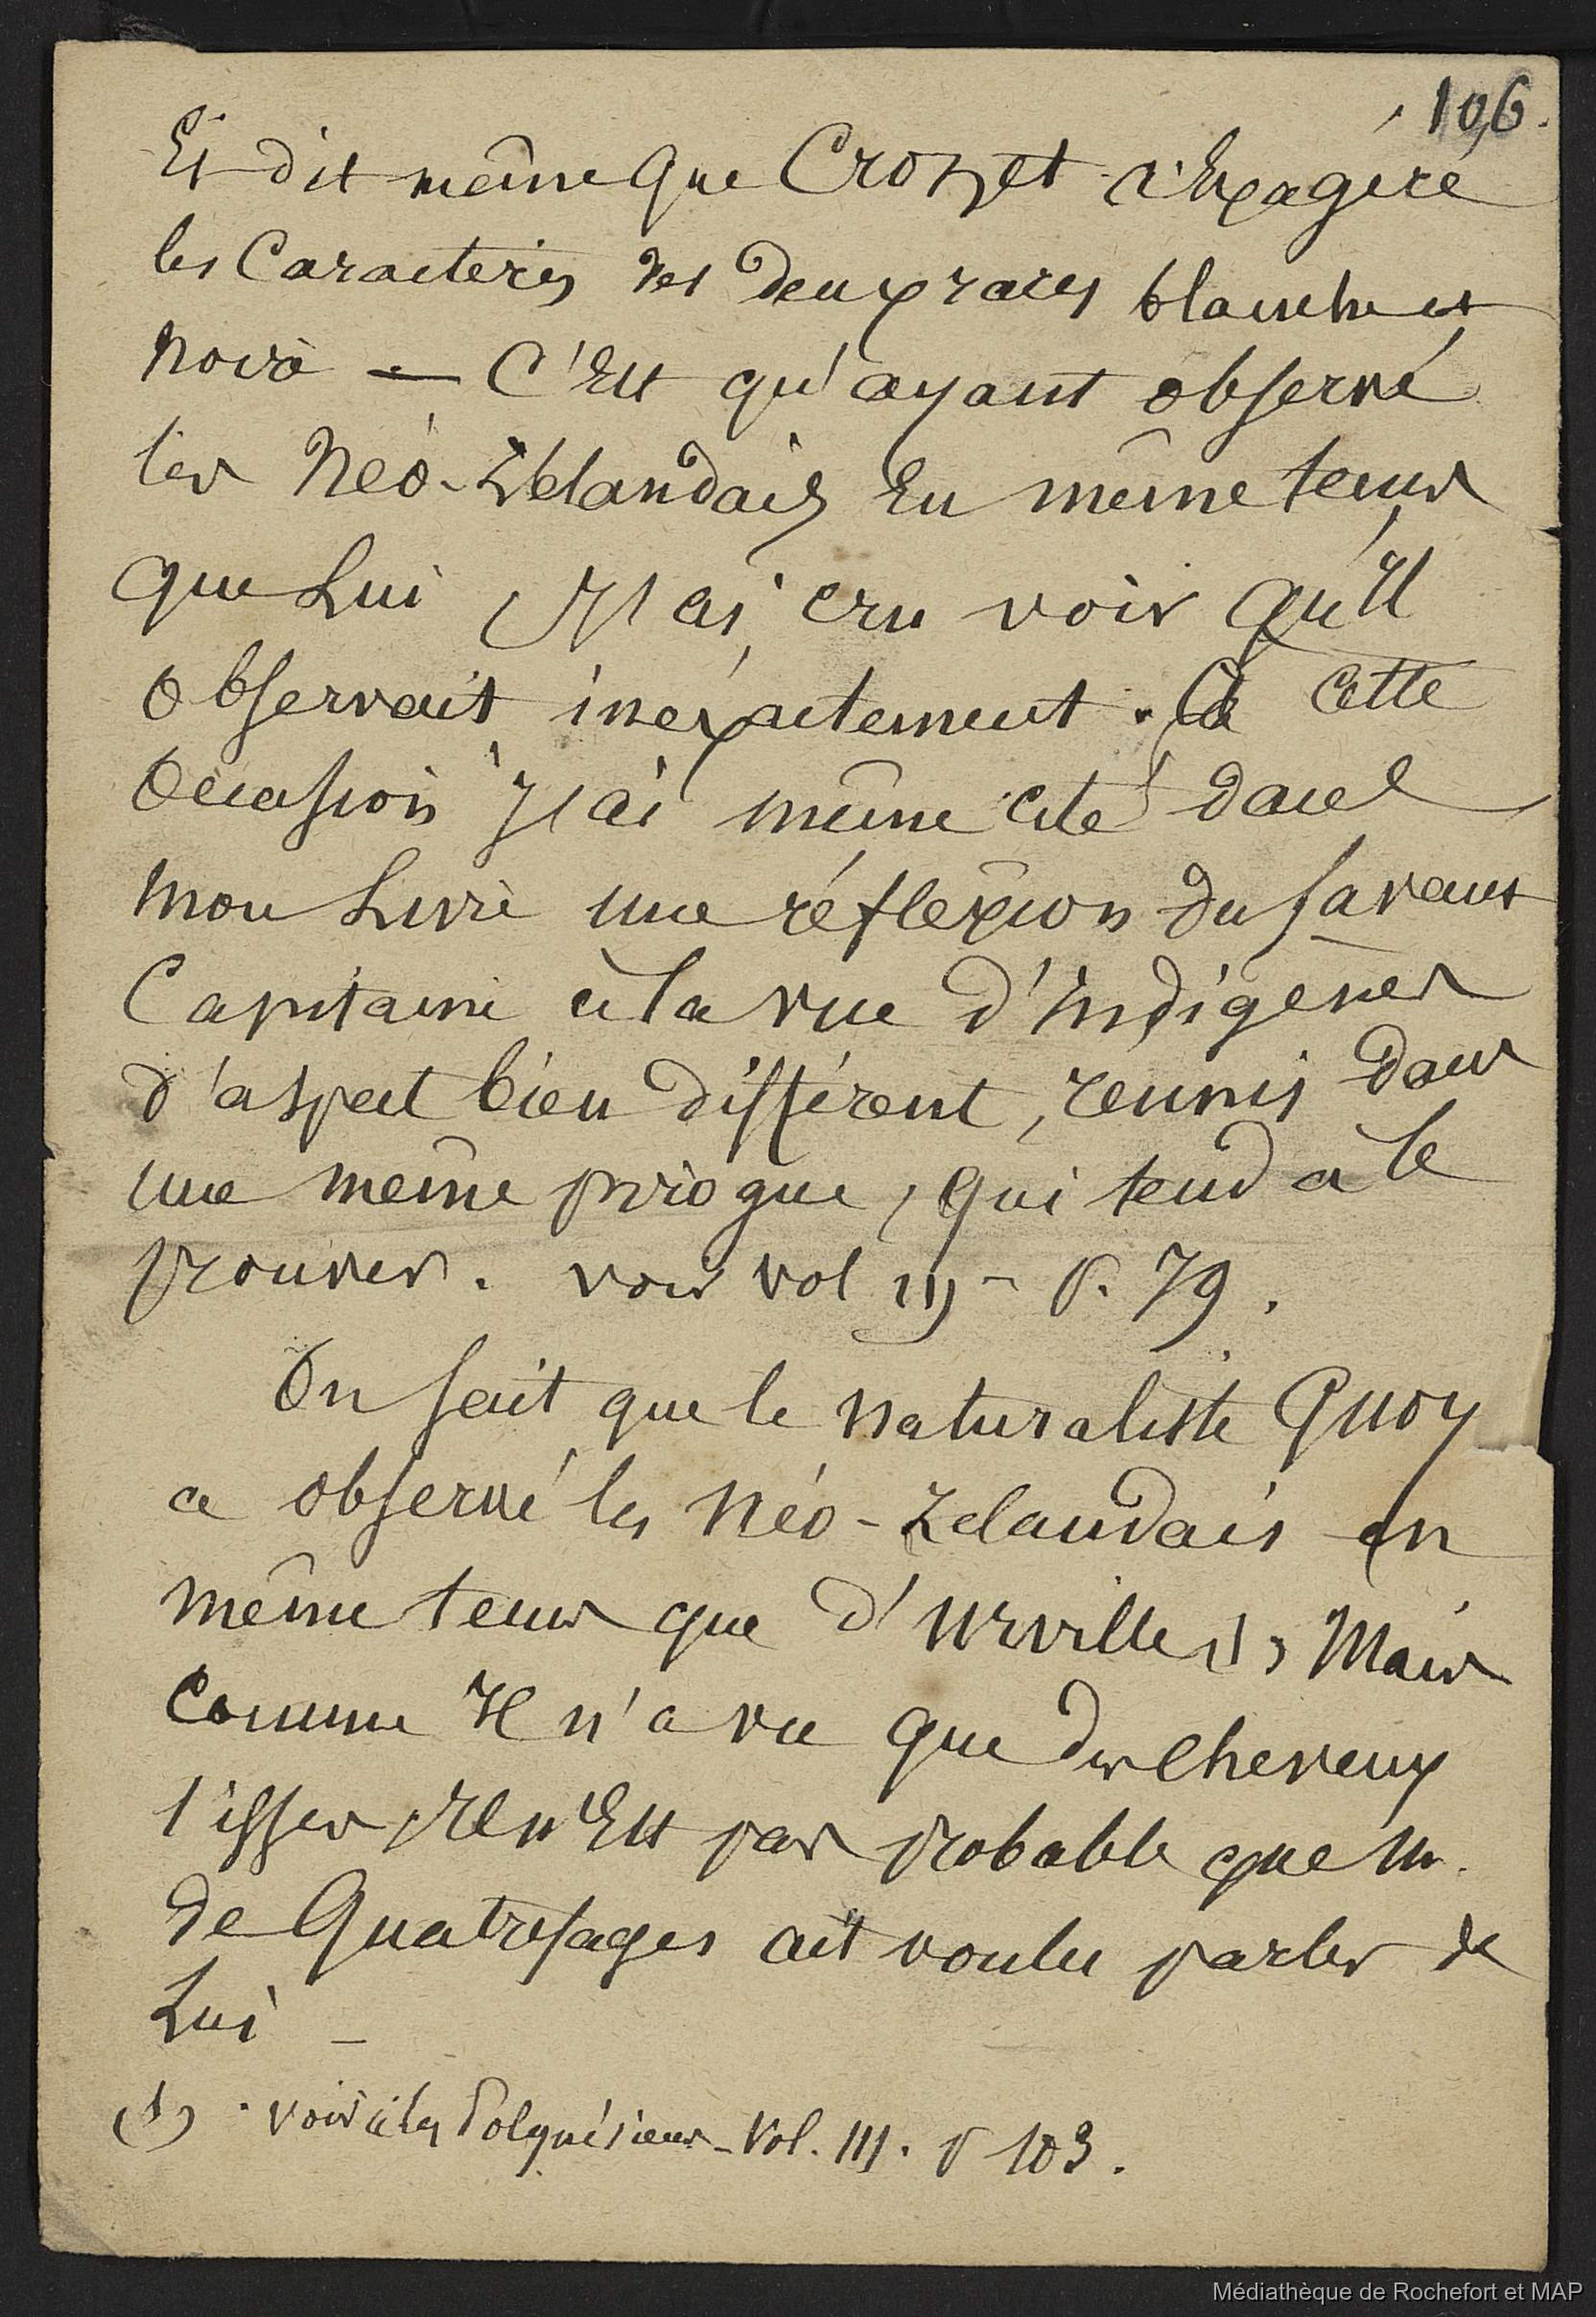 106.
Et dit même que Crozet a Exagéré
les Caractères des deux races blanche et
noire — C'Est qu'ayant observé
les Néo-Zélandais En même tems
que Lui, J'ai cru voir qu'Il
observait inéxactement. à cette
occasion J'ai même cité dans
mon Livre une réflexion du savant
Capitaine à la vue d'Indigènes
d'aspect bien différent, reunis dans
une même pirogue, qui tend à le
prouver. voir vol III - P. 79.
On sait que le naturaliste Quoy
a observé les Néo-Zélandais en
même tems que d'Urville (1), Mais
comme Il n'a vu que des cheveux
lisses, Il n'Est pas probable que M.
de Quatrefages ait voulu parler de
Lui -
(1). Voir : les Polynésiens - Vol. III. P 103.
Médiathèque de Rochefort et MAP